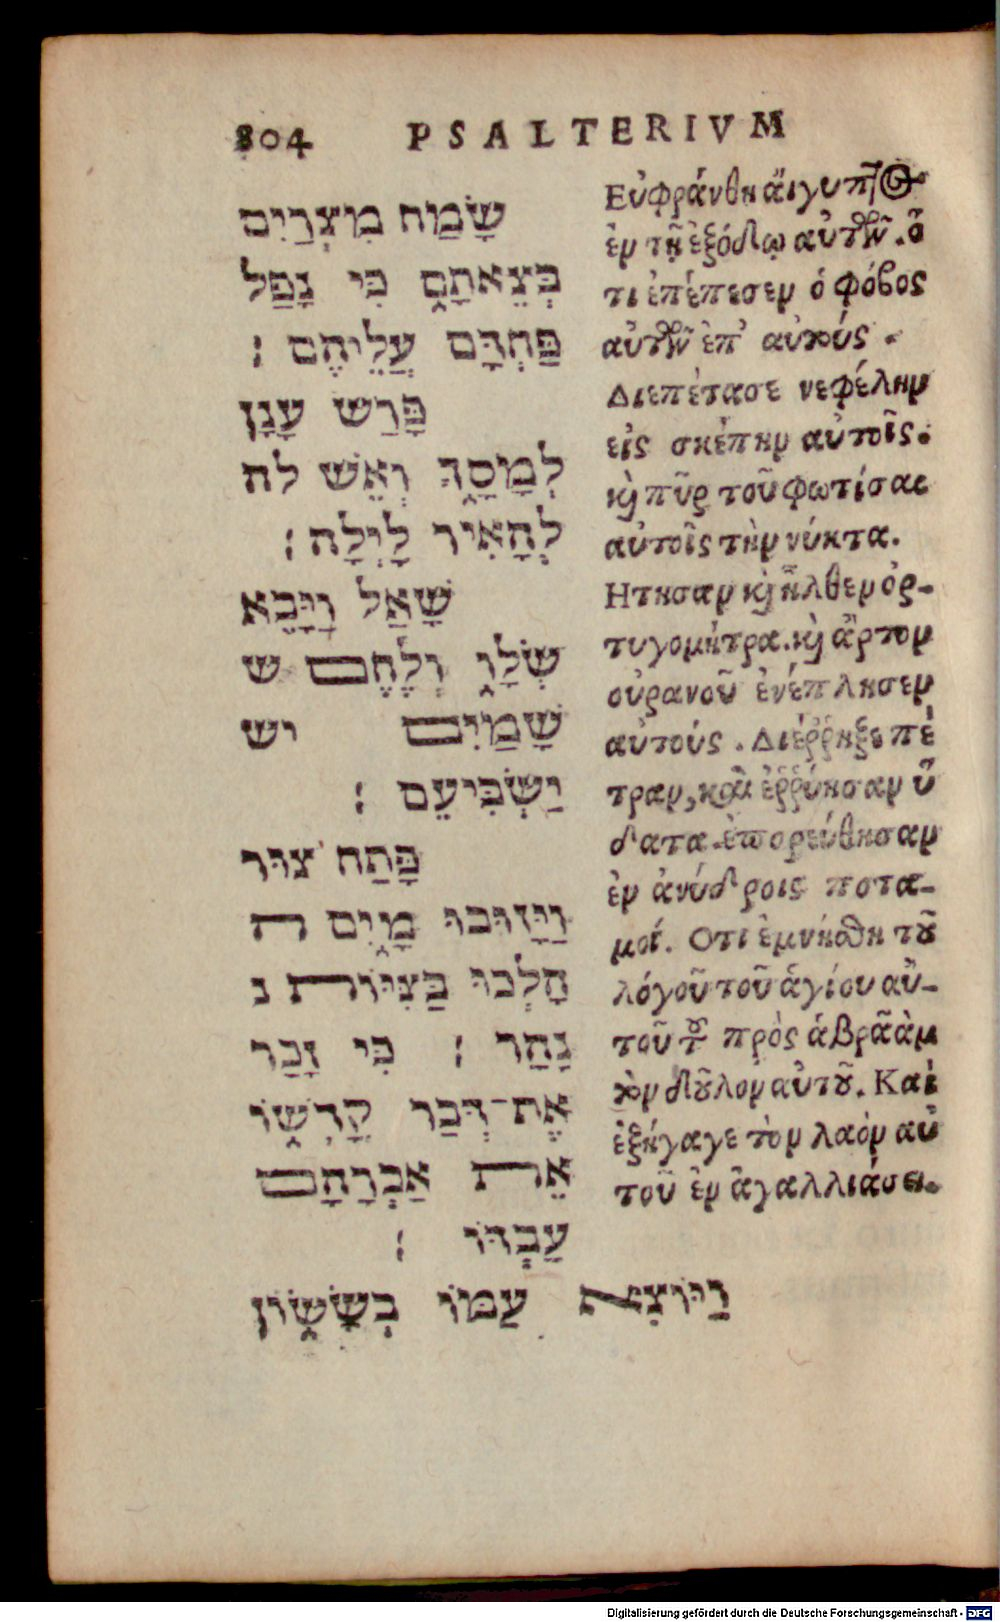 804 PSALTERIVM
שָׂמַח מִצְרַיִם
בְּצֵאתָם כִּי נָפַל
פַּחְדָּם עֲלֵיהֶם :
פָּרַשׂ עָנָן
לְמָסָךְ וְאֵשׁ לה
לְהָאִיר לָיְלָה :
שָׁאַל וַיָּבֵא
שְׂלָו וְלֶחֶם ש
שָׁמַיִם יש
יַשְׂבִּיעֵם :
פָּתַח צוּר
וַיָּזוּבוּ מָיִם ה
הָלְכוּ בַּצִּיּוֹת נ
נָהָר : כִּי זָכַר
אֶת־דְּבַר קָדְשׁוֹ
אֵת אַבְרָהָם
עַבְדּוֹ :
וַיּוֹצִא עַמּוֹ בְשָׂשׂוֹן
Εὐφράνθη ἄιγυπτος
ἐν τῇ ἐξόδῳ αὐτῶν. ὅ
τι ἐπέπεσεν ὁ φόβος
αὐτῶν ἐπ’ αὐτούς .
Διεπέτασε νεφέλην
εἰς σκέπην αὐτοῖς.
κὶ πῦρ τοῦ φωτίσαι
αὐτοῖς τὴν νύκτα.
Ητησαν κὶ ἦλθεν ὀρ-
τυγομήτρα. κὶ ἄρτον
οὐρανοῦ ἐνέπλησεν
αὐτούς . Διέῤῥηξε πέ
τραν, καὶ ἐῤῥύησαν ὕ
δατα. ἐπορεύθησαν
ἐν ἀνύδροις ποτα-
μοί. Οτι ἐμνήσθη τοῦ
λόγοῦ τοῦ ἁγίου αὐ-
τοῦ τοῦ πρὸς ἁβραὰμ
τὸν δοῦλον αὐτοῦ. Καὶ
ἐξήγαγε τὸν λαὸν αὐ
τοῦ ἐν ἀγαλλιάσει.
Digitalisierung gefördert durch die Deutsche Forschungsgemeinschaft - DFG